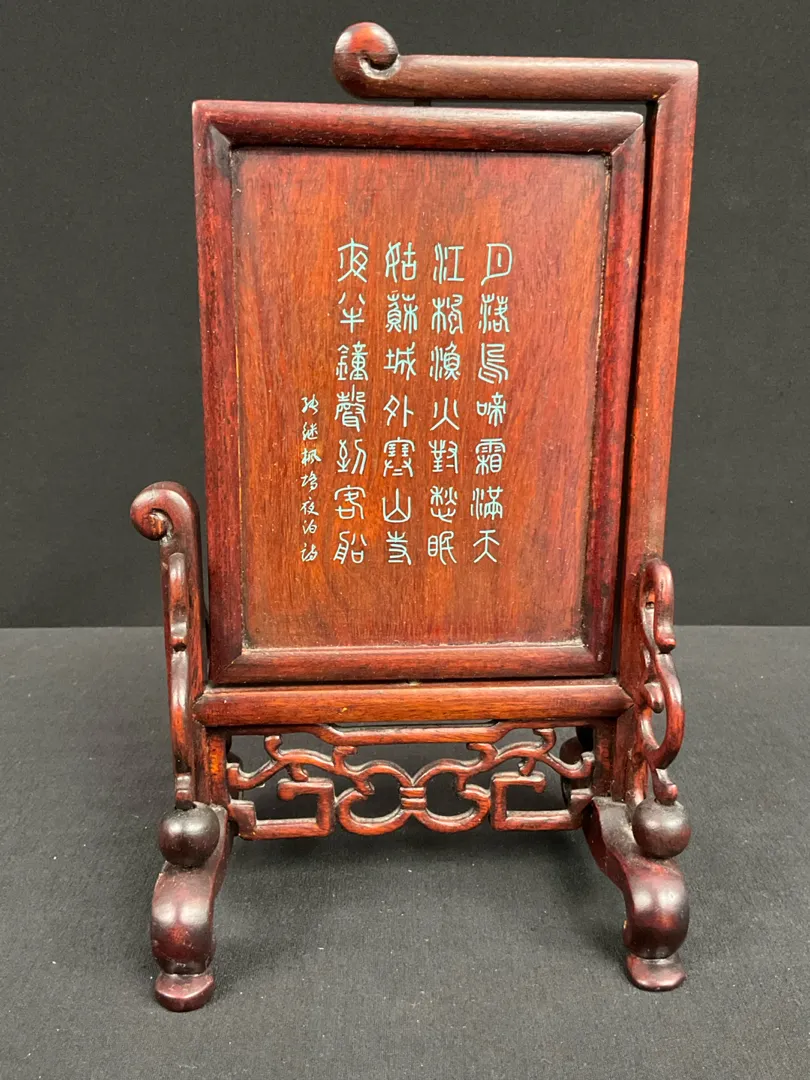 月落烏啼霜滿天
江楓漁火對愁眠
姑蘇城外寒山寺
夜半鐘聲到客船
張继枫橋夜泊詩